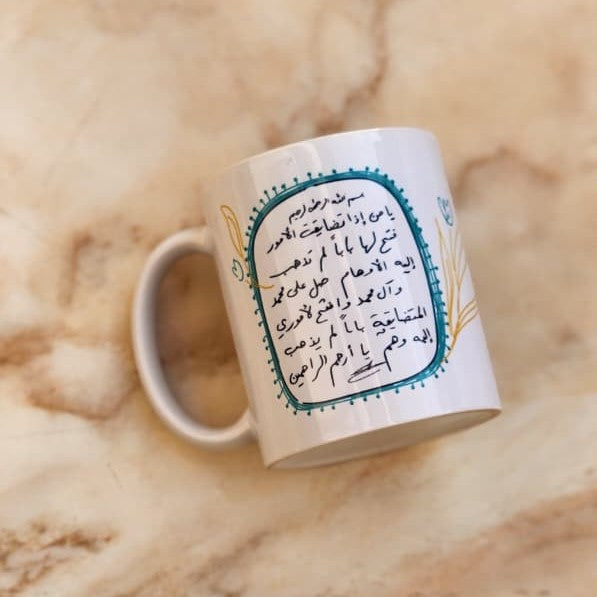 بسم الله الرحمن الرحيم
يا من إذا تضايقت الأمور
فتح لها باباً لم تذهب
إليه الأوهام صل على محمد
وآل محمد وافتح لأموري
المتضايقة باباً لم يذهب
إليه وهم يا أرحم الراحمين